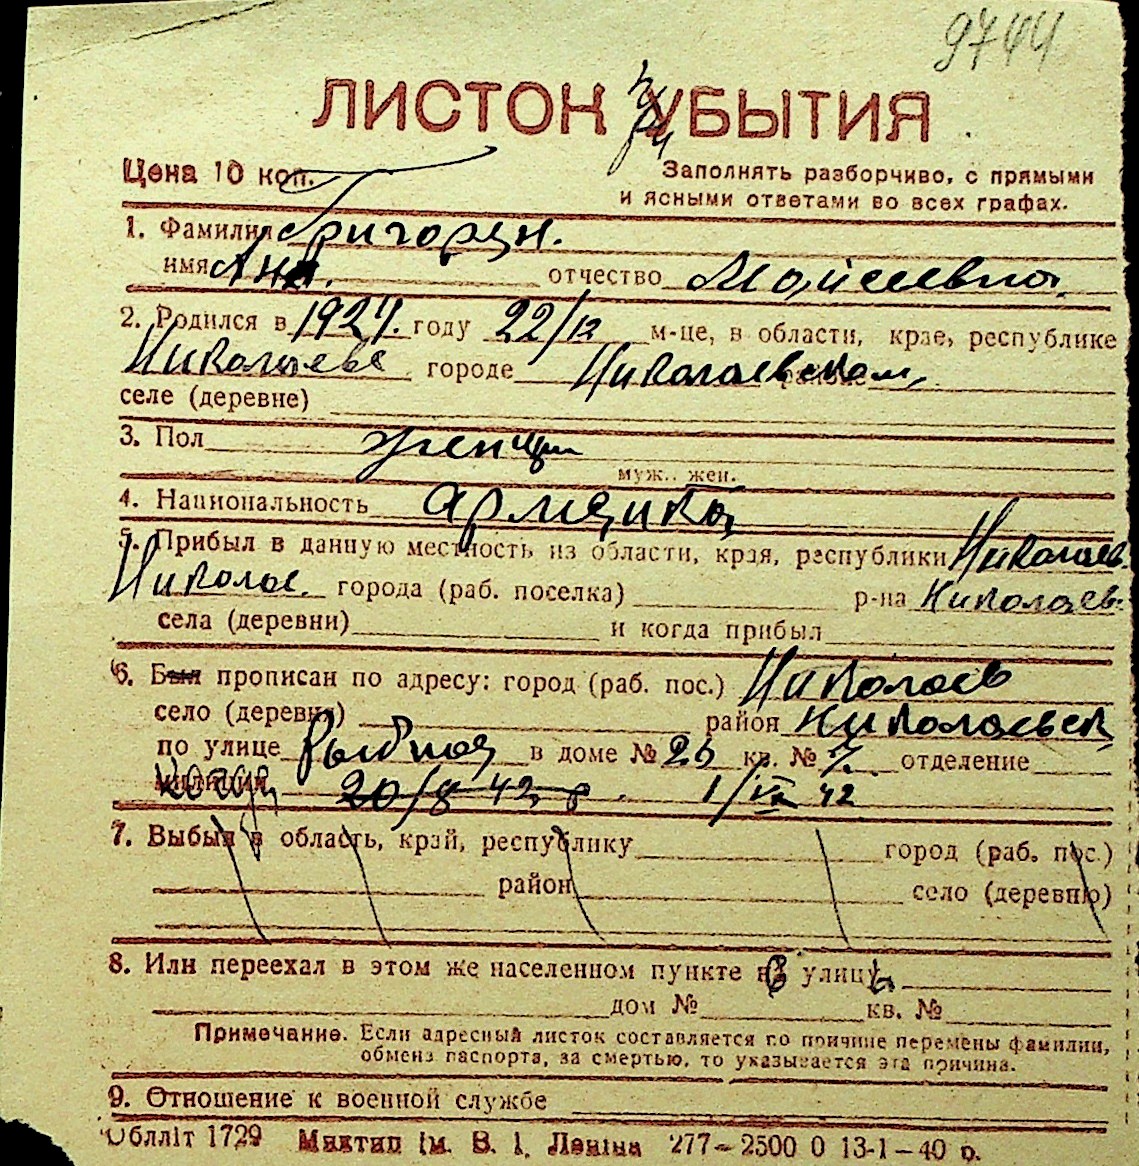 9744
ЛИСТОК УБЫТИЯ
Цена 10 коп.
Заполнять разборчиво, с прямыми
и ясными ответами во всех графах.
1. Фамилия Григорян.
имя Анн. отчество Мойсеевна.
2. Родился в 1924. году 22/12 м-це, в области, крае, республике
Николаеве городе Николаевском,
селе (деревне)
3. Пол женщин
муж.. жен.
4. Национальность армянка
5. Прибыл в данную местность из области, края, республики Николаев.
Николае. города (раб. поселка) р-на Николаев.
села (деревни) и когда прибыл
6. Был прописан по адресу: город (раб. пос.) Николаев
село (деревня) район Николаевск
по улице Рыбная в доме № 26 кв. № отделение
милиции 20/8 42 1/IX 42
7. Выбыл в область, край, республику город (раб. пос.)
район село (деревню)
8. Или переехал в этом же населенном пункте улицу
дом № кв. №
Примечание. Если адресный листок составляется по причине перемены фамилии,
обмена паспорта, за смертью, то указывается эта причина.
9. Отношение к военной службе
Обллiт 1729 Миктип iм. В. I. Ленiна 277—2500 0 13-1—40 р.